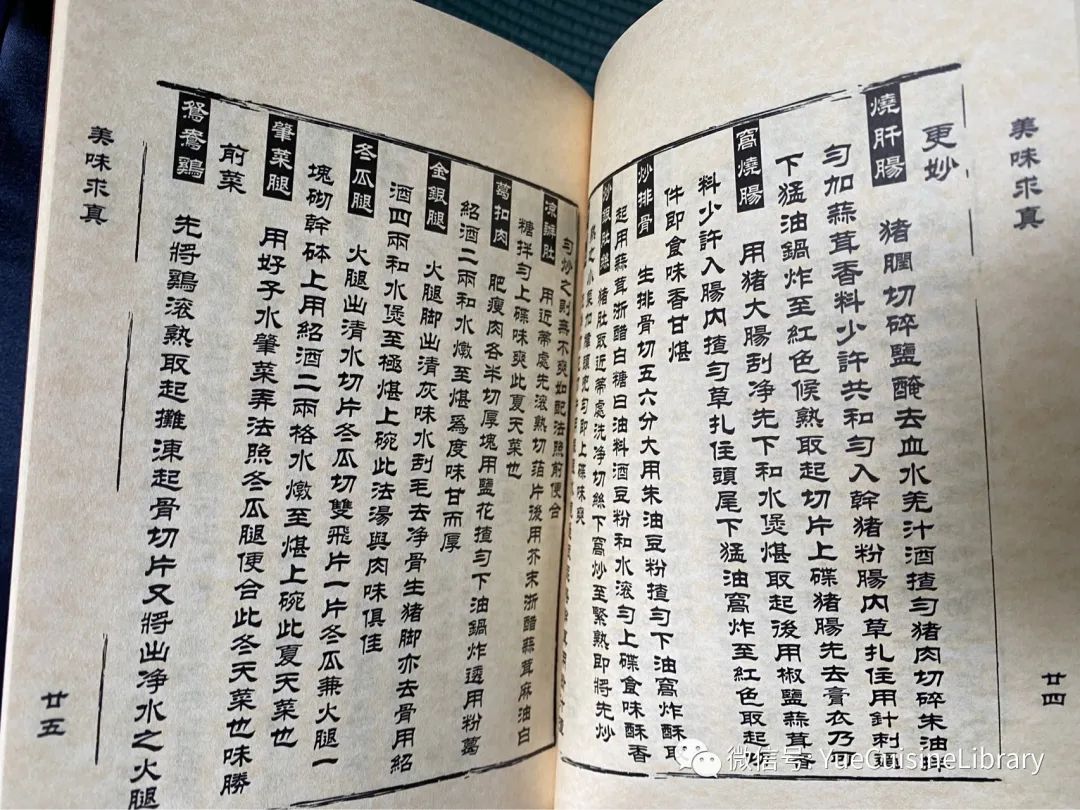 美味求真
廿四
更妙
燒肝腸 猪膶切碎鹽醃去血水羌汁酒揸勻猪肉切碎朱油拌
勻加蒜茸香料少許共和勻入幹猪粉腸內草扎住用針刺
下猛油鍋炸至紅色候熟取起切片上碟猪腸先去膏衣乃可
窩燒腸 用猪大腸刮净先下和水煲煁取起後用椒鹽蒜茸香
料少許入腸內揸勻草扎住頭尾下猛油窩炸至紅色取起
件即食味香甘煁
炒排骨 生排骨切五六分大用朱油豆粉揸勻下油窩炸酥取
起用蒜茸浙醋白糖白油料酒豆粉和水滚勻上碟食味酥香
猪肚取近蒂處洗净切絲下窩炒至緊熟即將先炒
兜勻即上碟味爽
勻炒之則無不爽如配法照前便合
凉辦肚 用近蒂處先滚熟切薄片後用芥末浙醋蒜茸麻油白
糖拌勻上碟味爽此夏天菜也
葛扣肉 肥瘦肉各半切厚塊用鹽花揸勻下油鍋炸透用粉葛
紹酒二兩和水燉至煁爲度味甘而厚
金銀腿 火腿脚出清灰味水刮毛去净骨生猪脚亦去骨用紹
酒四兩和水煲至極煁上碗此法湯與肉味俱佳
冬瓜腿 火腿出清水切片冬瓜切雙飛片一片冬瓜兼火腿一
塊砌幹砵上用紹酒二兩格水燉至煁上碗此夏天菜也
肇菜腿 用好子水肇菜弄法照冬瓜腿便合此冬天菜也味勝
前菜
鴛鴦鷄 先將鷄滚熟取起攤凍起骨切片又將出净水之火腿
美味求真
廿五
微信号: YueCuisineLibrary